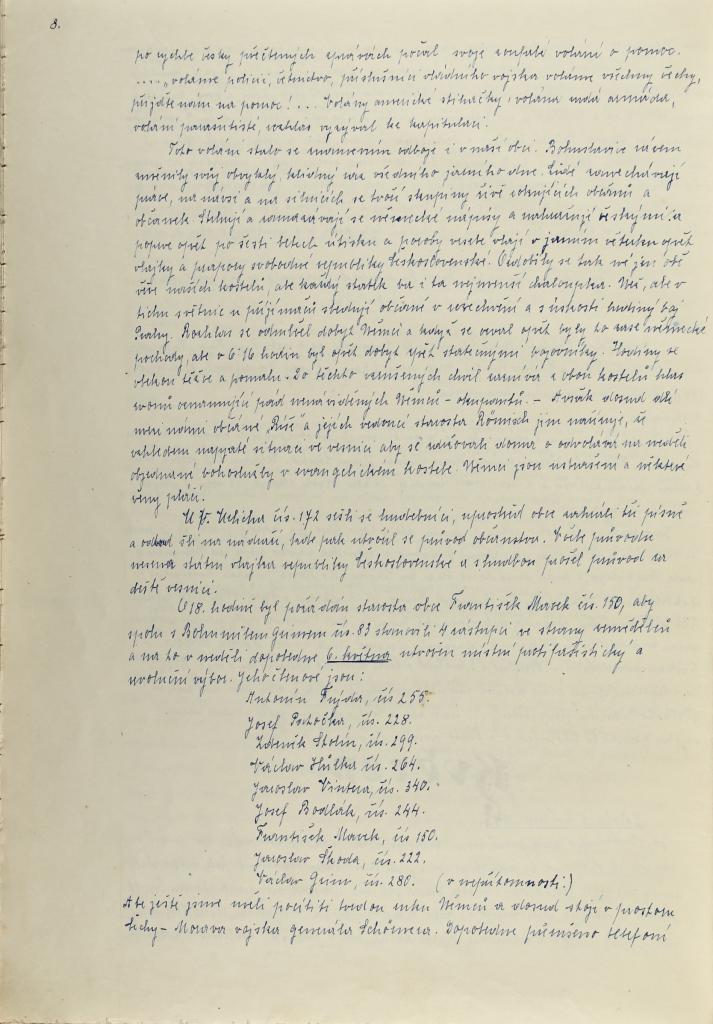 8.
po rychle česky přečtených zprávách počal svoje zoufalé volání o pomoc.
...., voláme policii, četnictvo, příslušníci vládního vojska voláme všechny Čechy,
přijďte nám na pomoc!... Volány americké stihačky, volána rudá armáda,
voláni parašutisté, rozhlas vyzýval ke kapitulaci.
Toto volání stalo se znamením odboje i v naší obci. Bohuslavice rázem
změnily svůj obvyklý, klidný ráz všedního jarního dne. Lidé zanechávají
práce, na návsi a na silnicích se tvoří skupiny živě diskujících občanů a
občanek. Strhují a zamazávají se německé nápisy a nahrazují českými a
poprvé opět po šesti letech útisku a poroby vesele vlají v jarním větérku opět
vlajky a prapory svobodné republiky Československé. Ozdobily se tak nejen obě
věže našich kostelů, ale každý statek ba i ta nejmenší chaloupka. Než, ale v
tichu světnic u přijímačů sledují občané v vzrušení a s úzkostí hodiny boj
Prahy. Rozhlas se odmlčel dobyt Němci a když se ozval opět byly to zase německé
pochody, ale v 6 16 hodin byl opět dobyt zpět statečnými bojovníky. Hodiny se
vlekou těžce a pomalu. Do těchto vzrušených chvil zaznívá z obou kostelů hlas
zvonů oznamující pád nenáviděných Němců – okupantů. – Avšak dosud dlí
mezi námi občané „Říše" a jejich vedoucí starosta Römisch jim nařizuje, že
vzhledem napjaté situaci ve vesnici aby se zdržovali doma a odvolává na neděli
objednané bohoslužby v evangelickém kostele. Němci jsou ustrašení a některé
ženy pláčí.
U Fr. Uelicha čís. 172 sešli se hudebníci, uprostřed obce zahráli tři písně
a odtud šli na nádraží, kde pak utvořil se průvod občanstva. V čele průvodu
nesená státní vlajka republiky Československé a s hudbou prošel průvod za
deště vesnicí.
O 18. hodině byl požádán starosta obce František Marek čís. 150, aby
spolu s Bohumilem Grimem čís. 83 stanovili 4 zástupci ze strany zemědělců
a na to v neděli dopoledne 6. května utvořen místní protifašistický a
revoluční výbor. Jeho členové jsou:
Antonín Fujda, čís 255.
Josef Potočka, čís. 228.
Zdeněk Stolín, čís. 299.
Václav Hůlka čís. 264.
Jaroslav Vintera, čís. 340.
Josef Bodlák, čís. 244.
František Marek, čís 150.
Jaroslav Škoda, čís. 222.
Václav Grim, čís. 280. (v nepřítomnosti.)
Ale ještě jsme měli pocítiti tvrdou ruku Němců a dosud stojí v prostoru
Čechy – Morava vojska generála Schörnera. Dopoledne přineseno telefoní